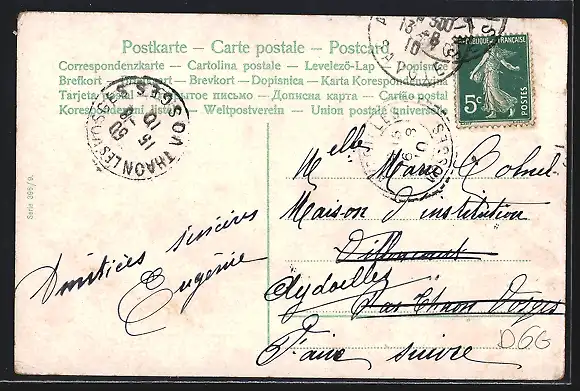 Postkarte – Carte postale – Postcard
Correspondenzkarte – Cartolina postale – Levelező-Lap – Dopisnice
Brefkort – – Brevkort – Dopisnica – Karta Korespondenc
Tarjeta postal – письмо – Дописна карта – Cartão postal
– Weltpostverein – Union postale universelle
THAON LES VOSGES
VOSGES
15
10
RÉPUBLIQUE FRANÇAISE
5c
POSTES
Serie 396/9.
Melle Marie Colnel
Maison d'institution
Dydoilles
par Thaon Vosges
Faire suivre
Amitiés sincères
Eugénie
D6G